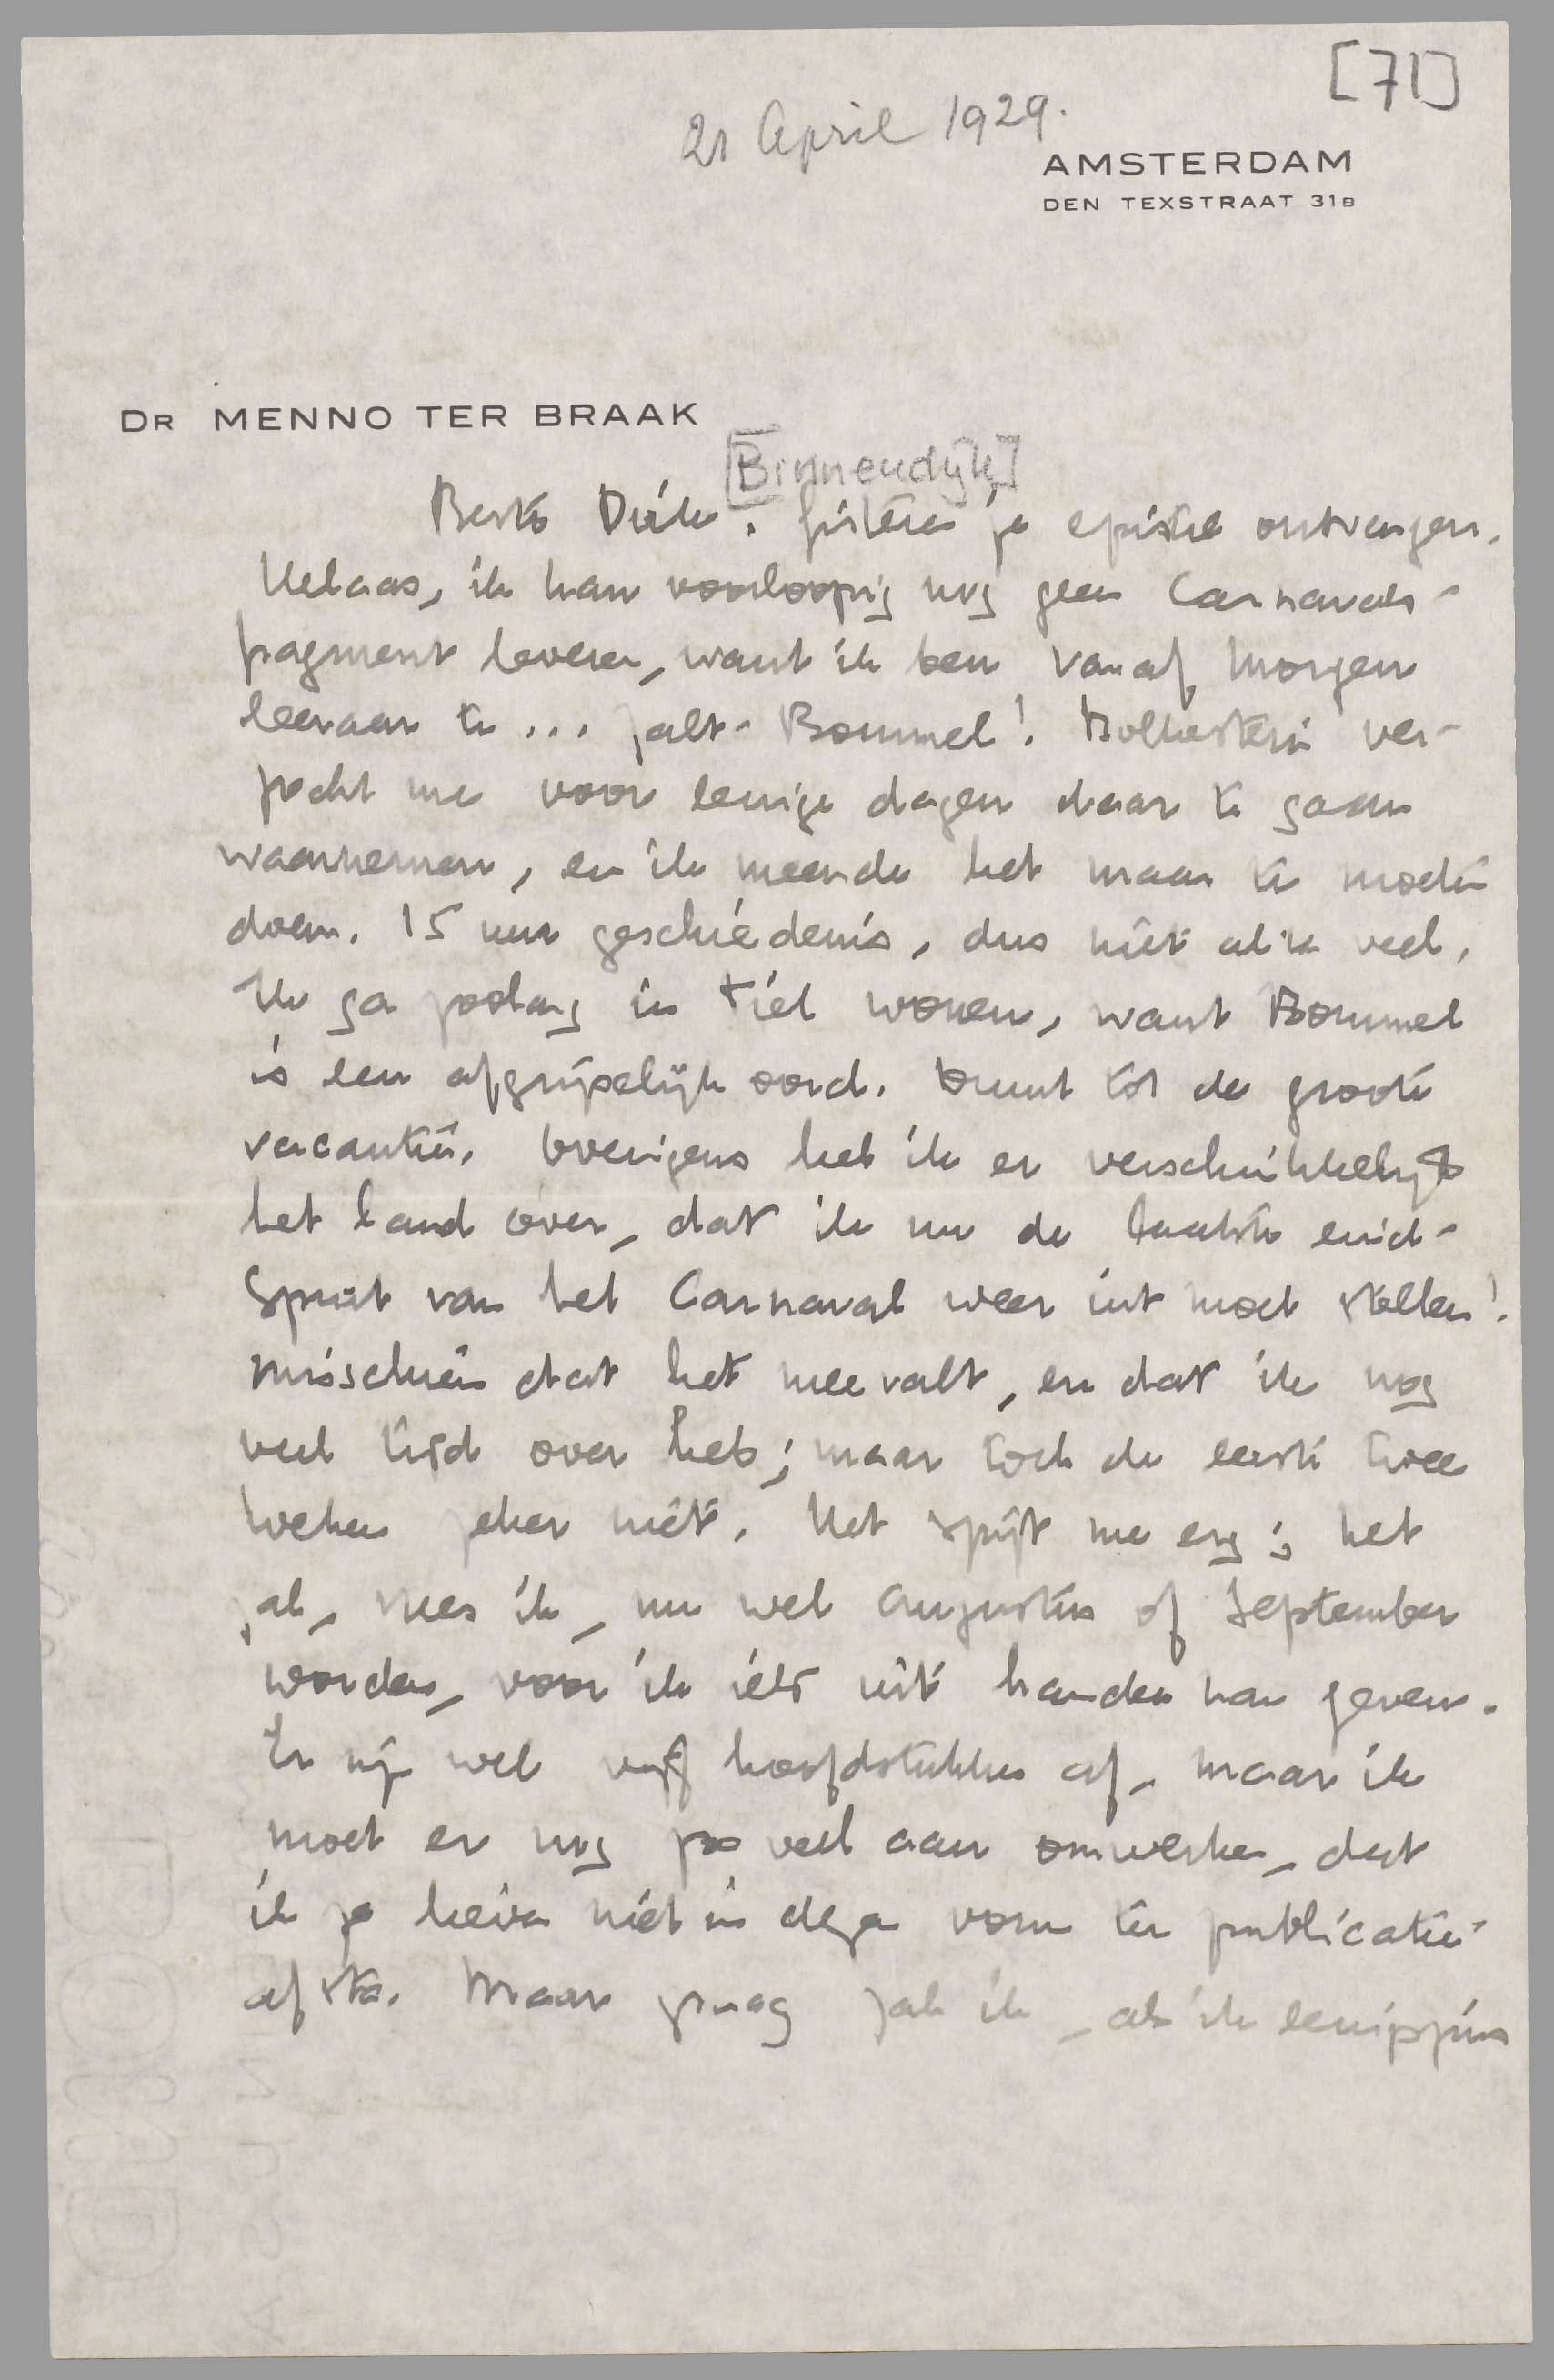 [71]
21 April 1929.
AMSTERDAM
DEN TEXSTRAAT 31B
DR MENNO TER BRAAK
[Binnendijk]
Beste Dick. Gisteren je epistel ontvangen.
Helaas, ik kan voorloopig nog geen Carnavals-
fragment leveren, want ik ben vanaf morgen
leeraar te ... Zalt-Bommel! Bolkestein ver-
zocht me voor eenige dagen daar te gaan
waarnemen, en ik meende het maar te moeten
doen. 15 uur geschiedenis, dus niet al te veel.
Ik ga zoolang in Tiel wonen, want Bommel
is een afgrijselijk oord. Duurt tot de groote
vacantie. Overigens heb ik er verschrikkelijk
het land over, dat ik nu de laatste eind-
spurt van het Carnaval weer uit moet stellen!
Misschien dat het meevalt, en dat ik nog
veel tijd over heb; maar toch de eerste twee
weken zeker niet. Het spijt me erg; het
zal, vrees ik, nu wel Augustus of September
worden, voor ik iets uit handen kan geven.
Er zijn wel vijf hoofdstukken af, maar ik
moet er nog zoo veel aan omwerken, dat
ik ze liever niet in dezen vorm ter publicatie
afsta. Maar graag zal ik, als ik eenigszins